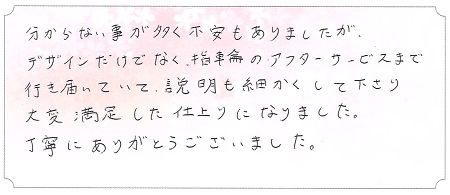 分からない事が多く不安もありましたが、
デザインだけでなく、指輪のアフターサービスまで
行き届いていて、説明も細かくして下さり
大変満足した仕上りになりました。
丁寧にありがとうございました。